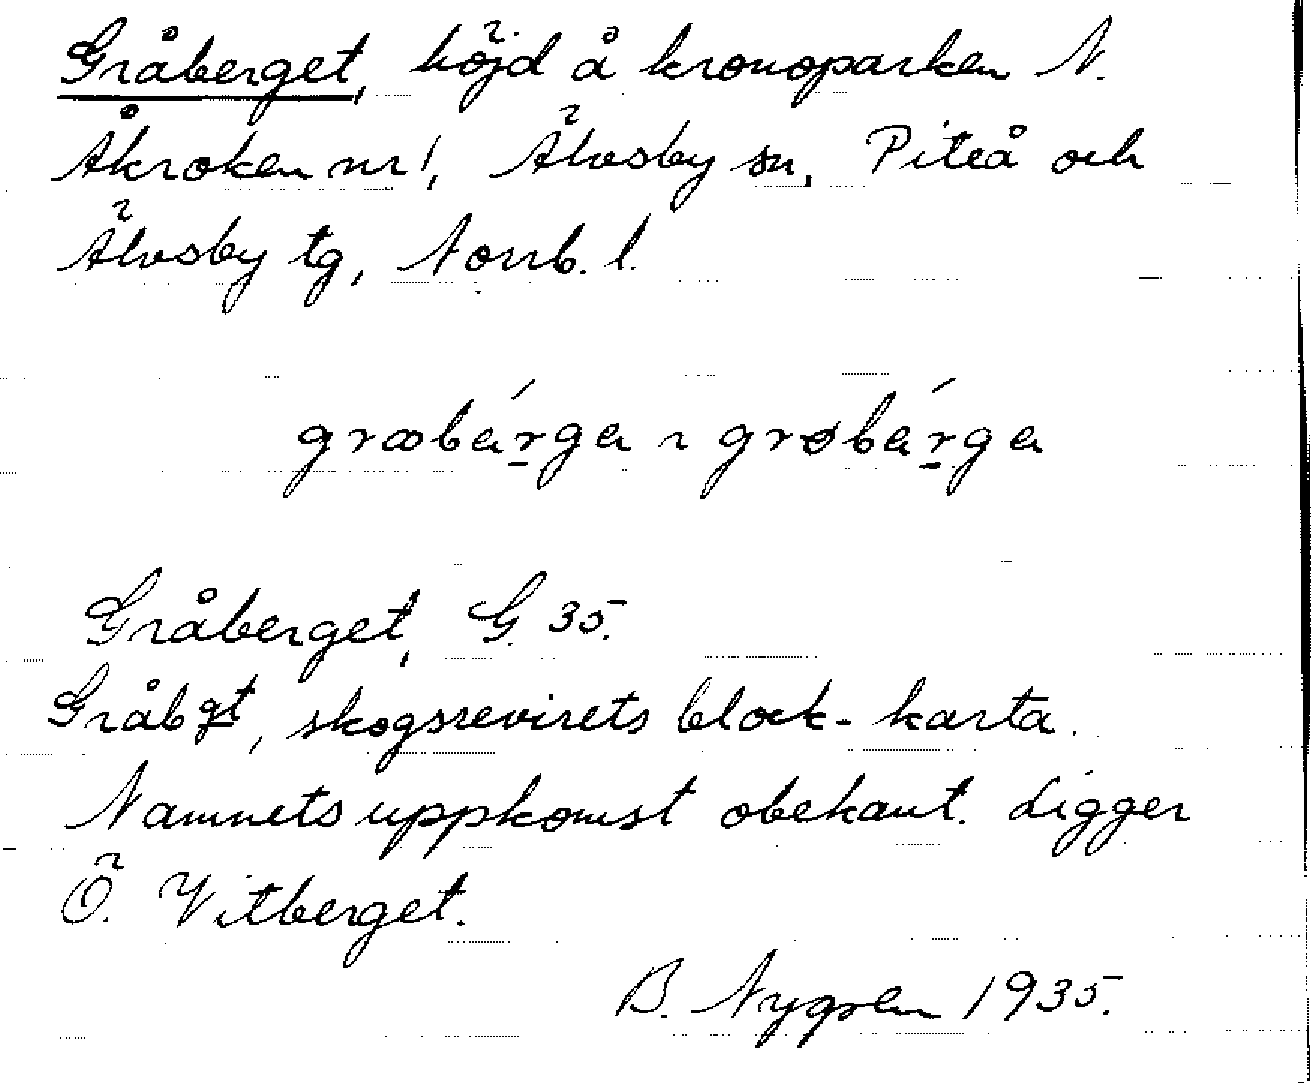 Gråberget, höjd å kronoparken N.
Åkroken nr 1, Älvsby sn, Piteå och
Älvsby tg, Norrb. l.
græbárga ~ grøbárga
Gråberget, G. 35.
Gråbgt, skogsrevirets block-karta.
Namnets uppkomst obekant. Ligger
Ö. Vitberget.
B. Nygren 1935.